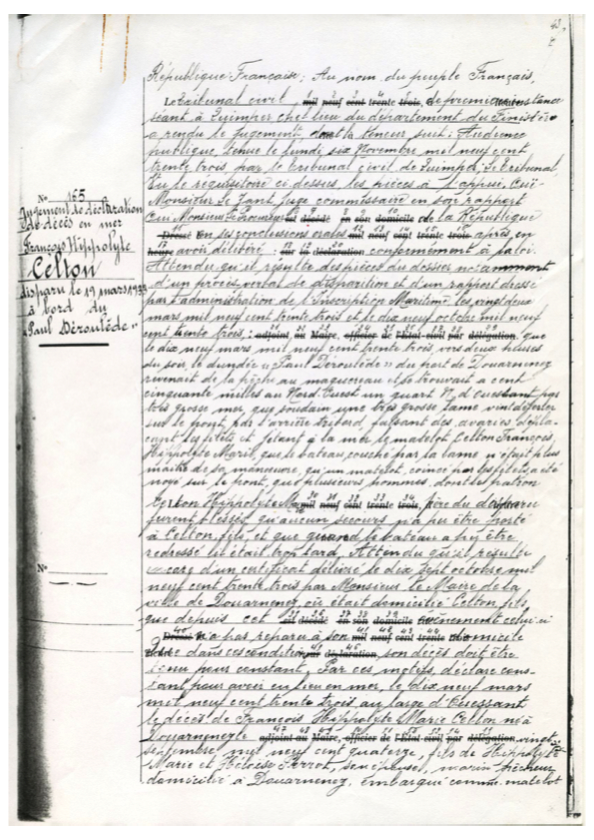 43
No 165
Jugement de déclaration
de décès en mer
François Hippolyte
Celton
disparu le 19 mars 1933
à bord du
"Paul Déroulède"
No
République Française; Au nom du peuple Français,
Le tribunal civil mil neuf cent trente trois, de première instance
séant à Quimper chef lieu du département du Finistère
a rendu le jugement, dont la teneur suit: Audience
publique, tenue le lundi six Novembre mil neuf cent
trente trois par le tribunal civil de Quimper. Le tribunal,
Vu le réquisitoire ci-dessus, les pièces à l'appui, Ouï
Monsieur Le juge commissaire en son rapport
Ouï Monsieur le Procureur est décédé en son domicile de la République
Décès en ses conclusions orales mil neuf cent trente trois après en
heure avoir délibéré sur la déclaration conformément à la loi.
Attendu qu'il résulte des pièces du dossier notamment
d'un procès verbal de disparition et d'un rapport dressé
par l'administration de l'Inscription Maritime les vingt deux
mars mil neuf cent trente trois et le dix neuf octobre mil neuf
cent trente trois, adjoint au Maire, officier de l'Etat-civil par délégation, que
le dix neuf mars mil neuf cent trente trois, vers deux heures
du soir, le dundée "Paul Déroulède" du port de Douarnenez
revenait de la pêche au maquereau et se trouvait à cent
cinquante milles au Nord-Ouest un quart d'Ouessant, par
très grosse mer, que soudain une très grosse lame vint déferler
sur le pont, par l'arrière tribord, faisant des avaries, dépla-
çant les filets et jetant à la mer le matelot Celton François,
Hippolyte Marie, que le bateau, couché par la lame n'était plus
maître de sa manœuvre, qu'un matelot, coincé par les filets a été
noyé sur le pont, que plusieurs hommes, dont le patron
Celton Hippolyte mil neuf cent trente trois, père du disparu
furent blessés, qu'aucun secours n'a pu être porté
à Celton fils, et que quand le bateau a pu être
redressé il était trop tard, Attendu qu'il résulte
encore d'un certificat délivré le dix sept octobre mil
neuf cent trente trois par Monsieur le Maire de la
ville de Douarnenez, où était domicilié Celton fils,
que depuis cet est décédé en son domicile événement celui-ci
Décès n'a pas reparu à son mil neuf cent trente domicile
que dans ces conditions sur déclaration, son décès doit être
tenu pour constant, Par ces motifs, déclare cons-
tant pour avoir eu lieu en mer, le dix neuf mars
mil neuf cent trente trois au large d'Ouessant
le décès de François Hippolyte Marie Celton né à
Douarnenez le adjoint au Maire, officier de l'Etat-civil par délégation, vingt
septembre mil neuf cent quatorze, fils de Hippolyte
Marie et Héloïse Perrot, son épouse, marin pêcheur
domicilié à Douarnenez, embarqué comme matelot